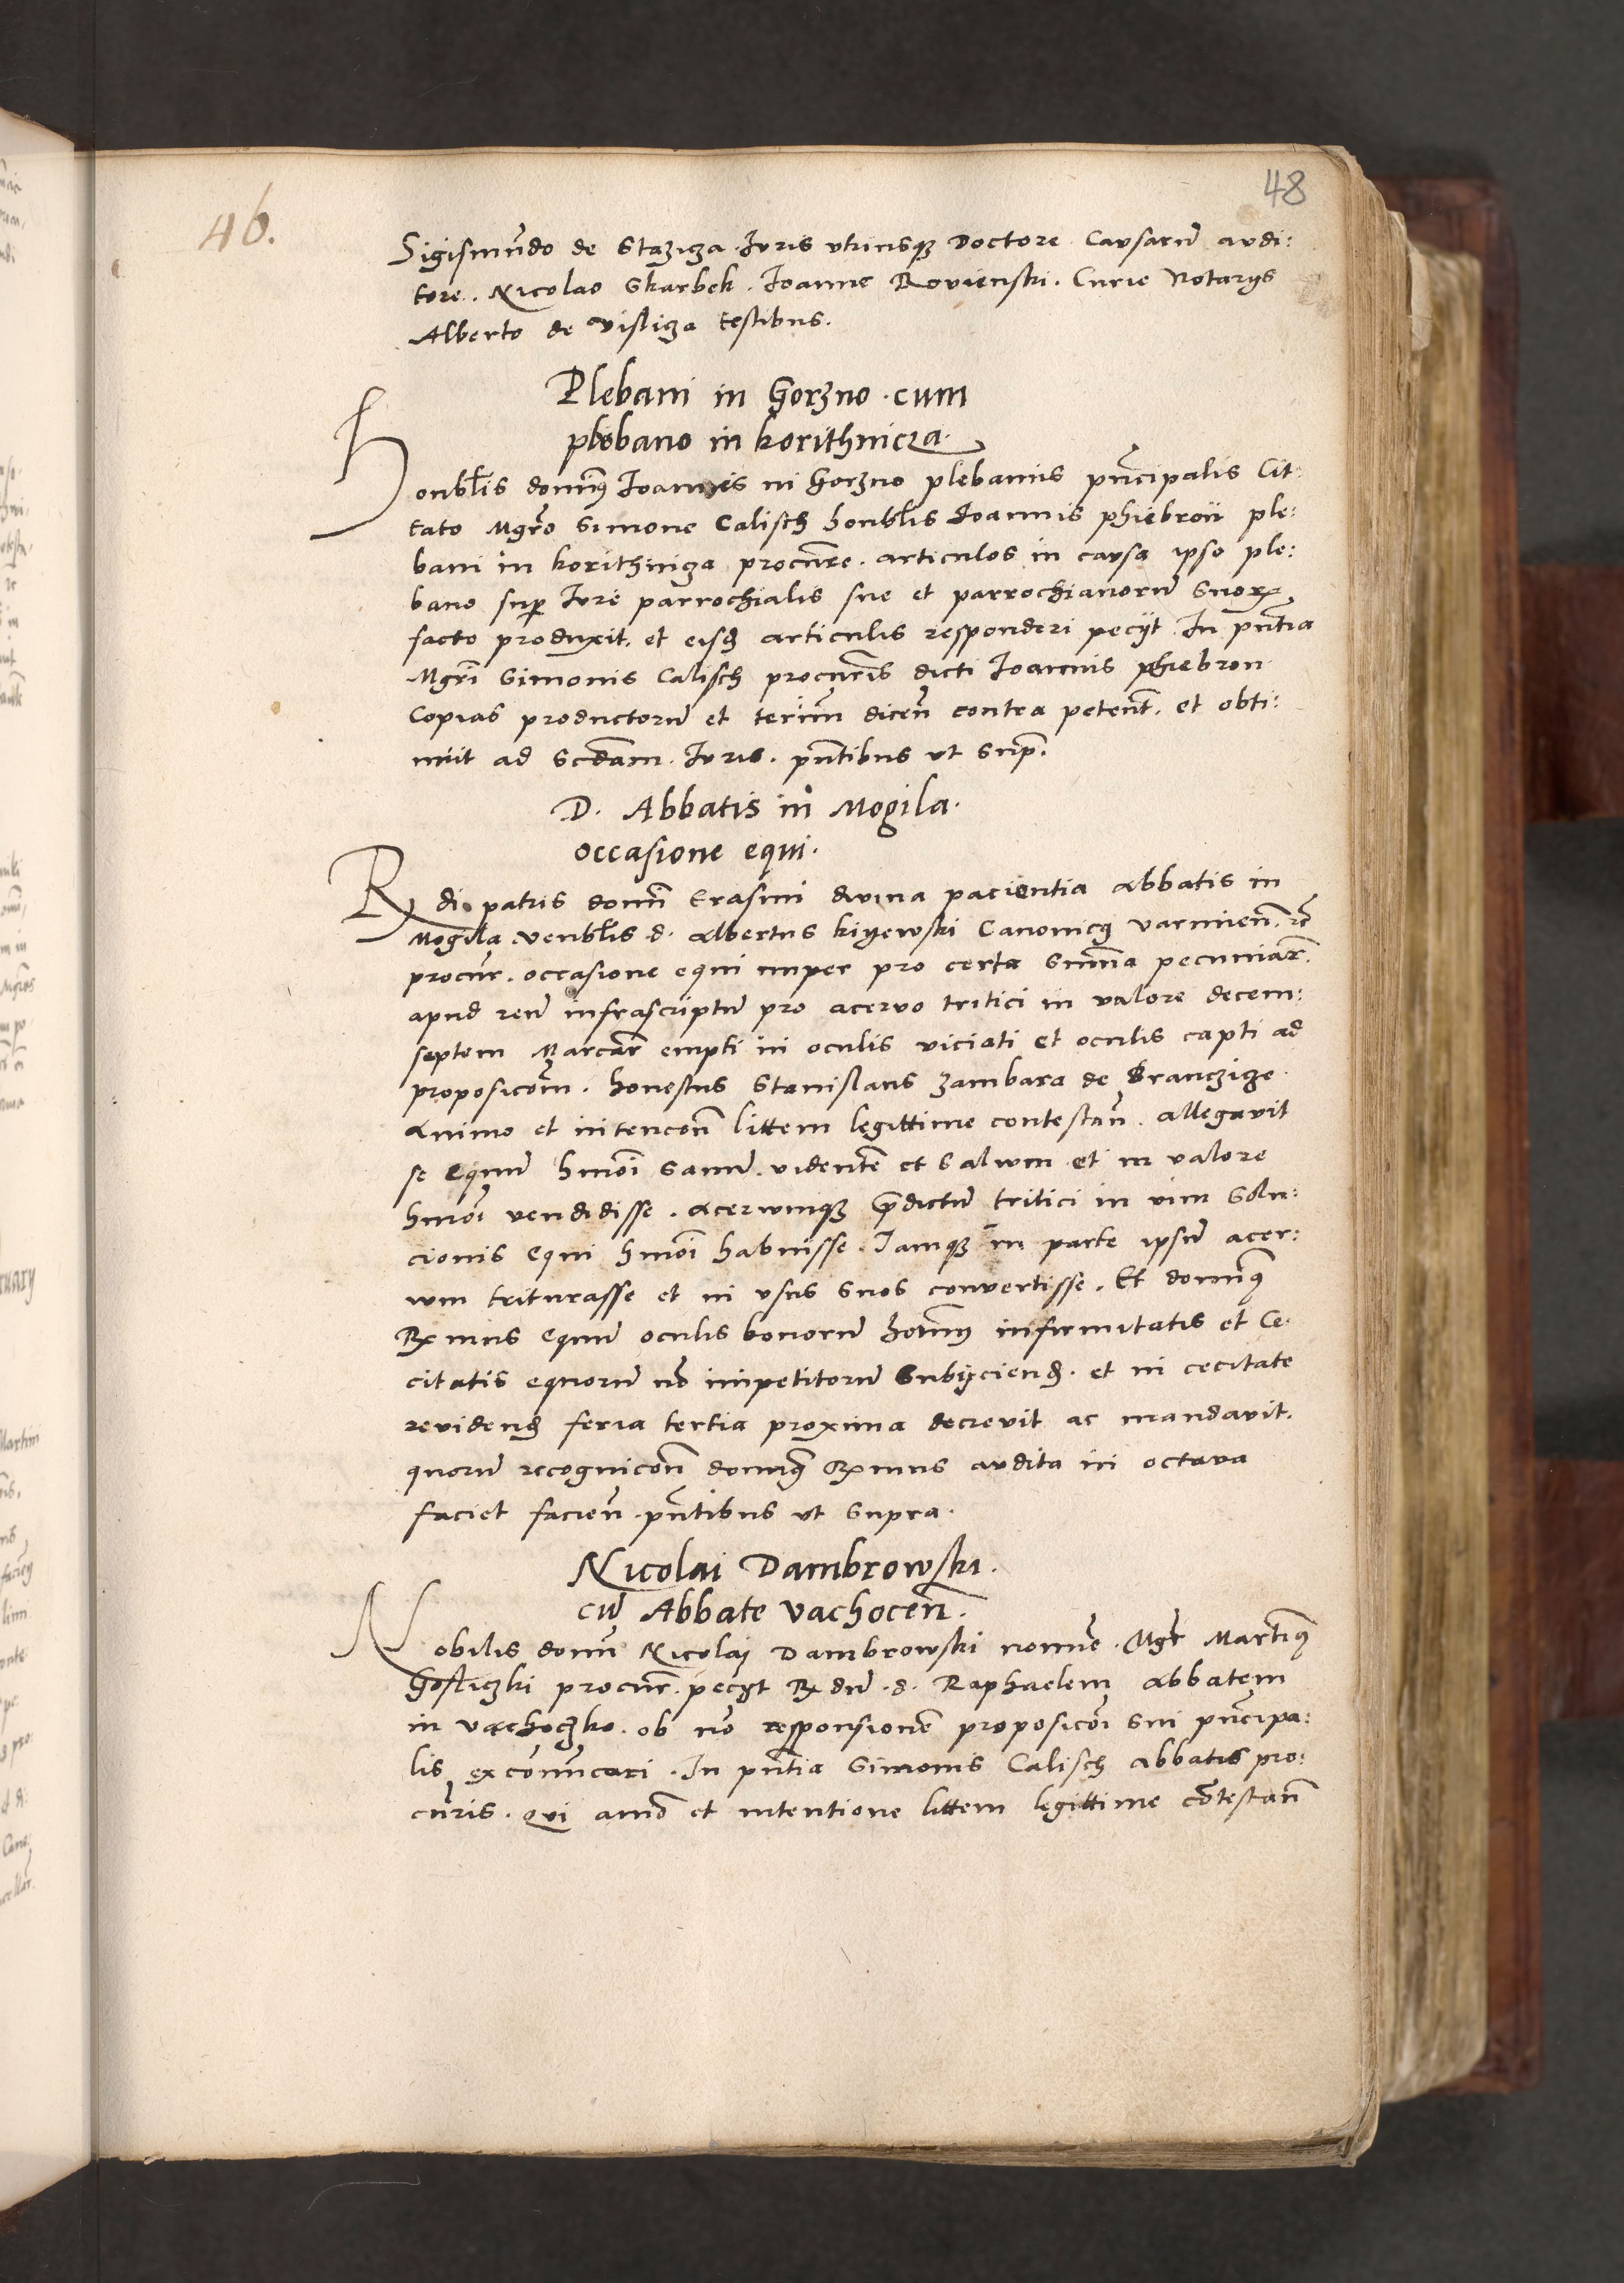 48
46.
Sigismūdo de Stazicza Iuris utriusqȝ Doctore Causarū audi:
tore. Nicolao Skarbek. Ioanne Rovienski. Curie Notarijs
Alberto de Vislicza testibus.
Plebani in Gorzno cum
plebano in korithnicza.
Honblīs domin9 Ioannes in Gorzno plebanus prīncipalis Cit:
tato Mgrō Simone Calisch honblīs Ioannis phiebron ple:
bani in korithnicza procurē. articulos in causa ipso ple:
bano sup Iure parrochialis sue et parrochianorū suorꝝ
facto produxit. et eisd articulis responderi pecijt In pntīa
Mgrī Simonis Calisch procurīs dicti Ioannis phiebron
Copias productorū et teriūm dicen̄ contra petent̄. et obti:
nuit ad Scdām Iuris. pntībus ut Sup.
D. Abbatis in Mogila.
occasione equi.
Rdi patris domi Erasmi divina paciẽntia Abbatis in
Mogila venblīs d. Albertus kiyewski Canonic9 Varmien̄.
procur̄. occasione equi nuper pro certa Summa pecuniar̄.
apud reū infrascriptū pro acervo tritici in valore decem:
septem Marcar̄ empti in oculis viciati et oculis capti ad
proposicōm. honestus Stanislaus zambara de Branczicze
Animo et intencōn littem legittime contestan̄. Allegavit
se equū hmōi sanū. videntē et Salvum et in valore
hmōi vendidisse. acervumqȝ p̄dictū tritici in vim Solu:
cionis equi hmōi habuisse. Iamqȝ in parte ipsū acer:
vum triturasse et in usus suos convertisse. Et domin9
Rxmus equū oculis bonorū homin9 infirmitatis et Ce:
citatis equorū nō impetitorū Subijciend. et in cecitate
revidend feria tertia proxima decrevit ac mandavit.
quorū recognicōn domin9 Rxmus audita in octava
faciet facien̄. pntībus ut Supra.
Nicolai Dambrowski.
cū Abbate Vachocen̄.
Nobilis domi Nicolaj Dambrowski nomīe. Mgr Martin9
Gosliczki procur̄. pecijt Rxdū. d. Raphaelem Abbatem
in Vachoczko. ob nō responsionē proposicōi Sui prīncipa:
lis excōmūcari. In pntīa Simonis Calisch Abbatis pro:
curīs. qui amō et intentione littem legittime cōtestan̄